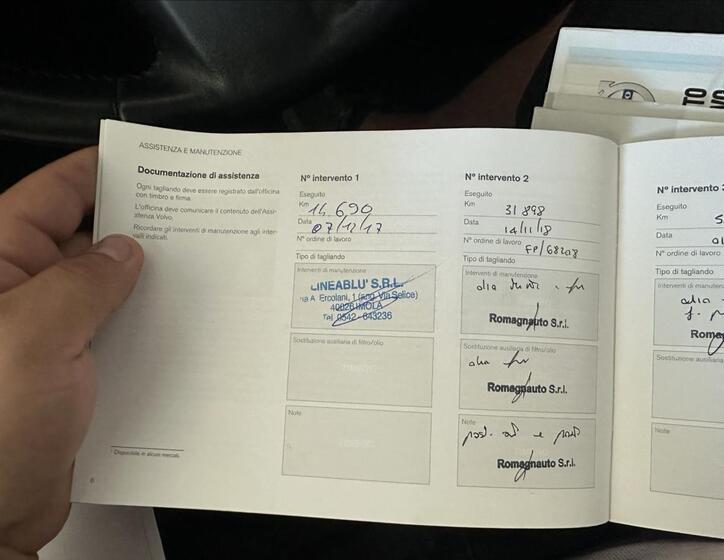 ASSISTENZA E MANUTENZIONE
Documentazione di assistenza
Ogni tagliando deve essere registrato dall'officina
con timbro e firma.
L'officina deve comunicare il contenuto dell'Assi-
stenza Volvo.
Ricordare gli interventi di manutenzione agli inter-
valli indicati.
1 Disponibile in alcuni mercati.
6
N° intervento 1
Eseguito
Km 14 690
Data 07/12/17
N° ordine di lavoro
Tipo di tagliando
Interventi di manutenzione
LINEABLU' S.R.L.
Via A. Ercolani, 1 (ang. Via Selice)
40026 IMOLA
Tel. 0542-643236
Sostituzione ausiliaria di filtro/olio
TIMBRO
Note
TIMBRO
N° intervento 2
Eseguito
Km 31 898
Data 14/11/18
N° ordine di lavoro FP/68208
Tipo di tagliando
Interventi di manutenzione
Romagnauto S.r.l.
Sostituzione ausiliaria di filtro/olio
Romagnauto S.r.l.
Note
Romagnauto S.r.l.
N° intervento 3
Eseguito
Km
Data
N° ordine di lavoro
Tipo di tagliando
Interventi di m
Romag
Sostituzione ausiliaria
Note